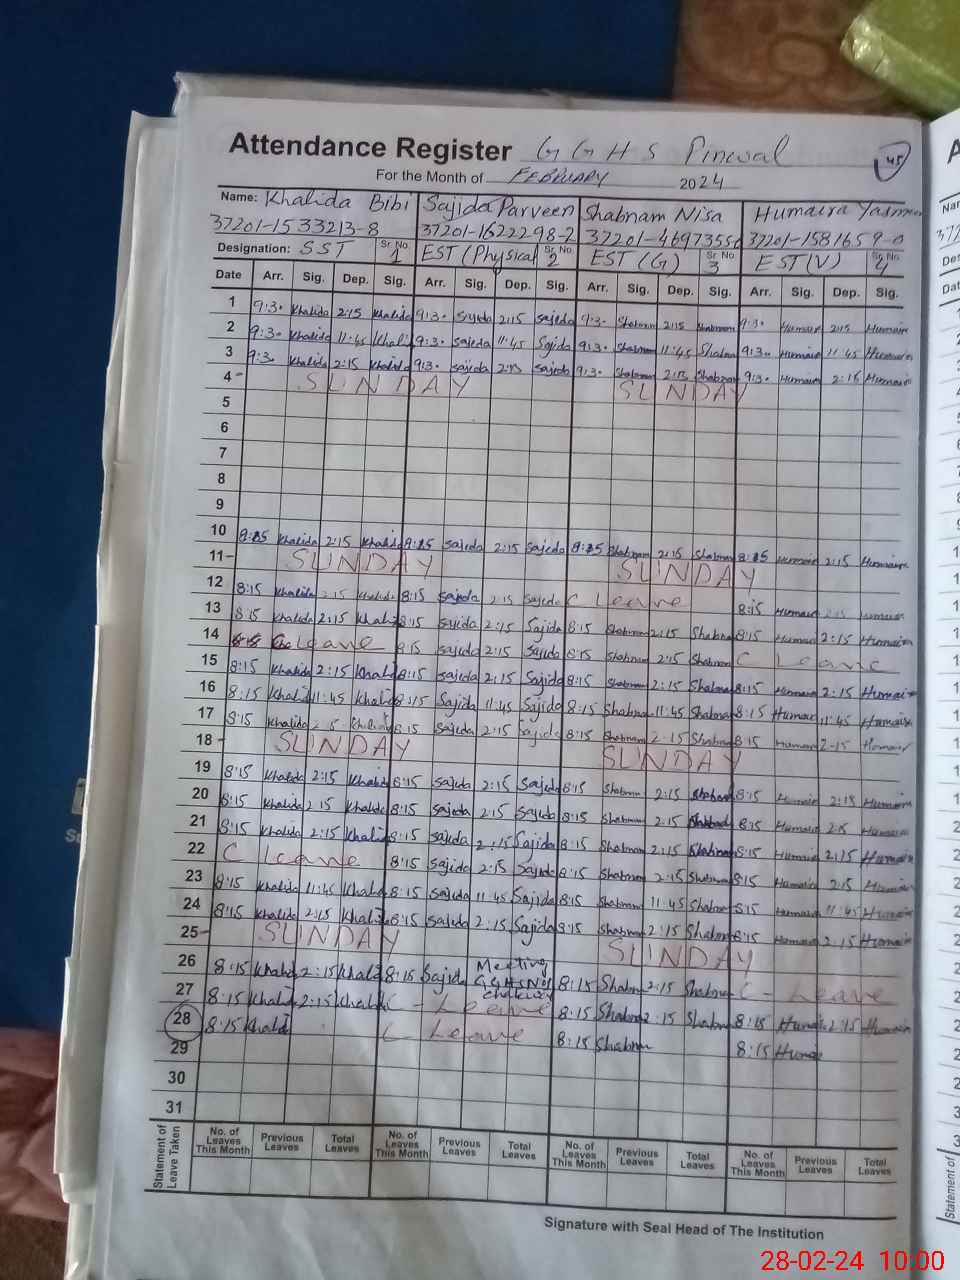 Attendance Register GGHS Pinwal 45
For the Month of FEBRUARY 2024
Name: Khalida Bibi Sajida Parveen Shabnam Nisa Humaira Yasmin
37201-1533213-8 37201-1622298-2 37201-4697355 37201-1581659-0
Designation: SST Sr. No. 1 EST (Physical Sr. No. 2 EST (G) Sr. No. 3 EST (V) Sr. No. 4
Date Arr. Sig. Dep. Sig. Arr. Sig. Dep. Sig. Arr. Sig. Dep. Sig. Arr. Sig. Dep. Sig.
1 9:30 Khalida 2:15 Khalida 9:30 Sajida 2:15 Sajida 9:30 Shabnam 2:15 Shabnam 9:30 Humaira 2:15 Humaira
2 9:30 Khalida 11:45 Khali 9:30 Sajida 11:45 Sajida 9:30 Shabnam 11:45 Shabna 9:30 Humaira 11:45 Humaira
3 9:30 Khalida 2:15 Khalida 9:30 Sajida 2:15 Sajida 9:30 Shabnam 2:15 Shabnam 9:30 Humaira 2:15 Humaira
4 - SUNDAY SUNDAY
5
6
7
8
9
10 8:15 Khalida 2:15 Khalida 8:15 Sajida 2:15 Sajida 8:15 Shabnam 2:15 Shabnam 8:15 Humaira 2:15 Humaira
11 - SUNDAY SUNDAY
12 8:15 Khalida 2:15 Khalida 8:15 Sajida 2:15 Sajida C Leave 8:15 Humaira 2:15 Humaira
13 8:15 Khalida 2:15 Khali 8:15 Sajida 2:15 Sajida 8:15 Shabnam 2:15 Shabna 8:15 Humaira 2:15 Humaira
14 C Leave 8:15 Sajida 2:15 Sajida 8:15 Shabnam 2:15 Shabnam C Leave
15 8:15 Khalida 2:15 Khalid 8:15 Sajida 2:15 Sajida 8:15 Shabnam 2:15 Shabnam 8:15 Humaira 2:15 Humaira
16 8:15 Khalid 11:45 Khalid 8:15 Sajida 11:45 Sajida 8:15 Shabnam 11:45 Shabnam 8:15 Humaira 11:45 Humaira
17 8:15 Khalida 2:15 Khalida 8:15 Sajida 2:15 Sajida 8:15 Shabnam 2:15 Shabnam 8:15 Humaira 2:15 Humair
18 - SUNDAY SUNDAY
19 8:15 Khalida 2:15 Khalida 8:15 Sajida 2:15 Sajida 8:15 Shabnam 2:15 Shabnam 8:15 Humaira 2:15 Humaira
20 8:15 Khalida 2:15 Khalida 8:15 Sajida 2:15 Sajida 8:15 Shabnam 2:15 8:15 Humaira 2:15 Humaira
21 8:15 Khalida 2:15 Khalid 8:15 Sajida 2:15 Sajida 8:15 Shabnam 2:15 Shabnam 8:15 Humaira 2:15 Humaira
22 C Leave 8:15 Sajida 2:15 Sajida 8:15 Shabnam 2:15 Shabnam 8:15 Humaira 2:15 Humaira
23 8:15 Khalida 11:45 Khalid 8:15 Sajida 11:45 Sajida 8:15 Shabnam 11:45 Shabnam 8:15 Humaira 11:45 Humaira
24 8:15 Khalida 2:15 Khalid 8:15 Sajida 2:15 Sajida 8:15 Shabnam 2:15 Shabnam 8:15 Humaira 2:15 Humaira
25 - SUNDAY SUNDAY
26 8:15 Khalid 2:15 Khalid 8:15 Sajida Meeting GGHS No 1 8:15 Shabna 2:15 Shabnam C - Leave
27 8:15 Khalid 2:15 Khalid C - Leave 8:15 Shabnam 2:15 Shabna 8:15 Humaira 2:15 Humaira
28 8:15 Khalid C Leave 8:15 Shabnam 8:15 Humai
29
30
31
Statement of Leave Taken No. of Leaves This Month Previous Leaves Total Leaves No. of Leaves This Month Previous Leaves Total Leaves No. of Leaves This Month Previous Leaves Total Leaves No. of Leaves This Month Previous Leaves Total Leaves
Signature with Seal Head of The Institution
28-02-24 10:00